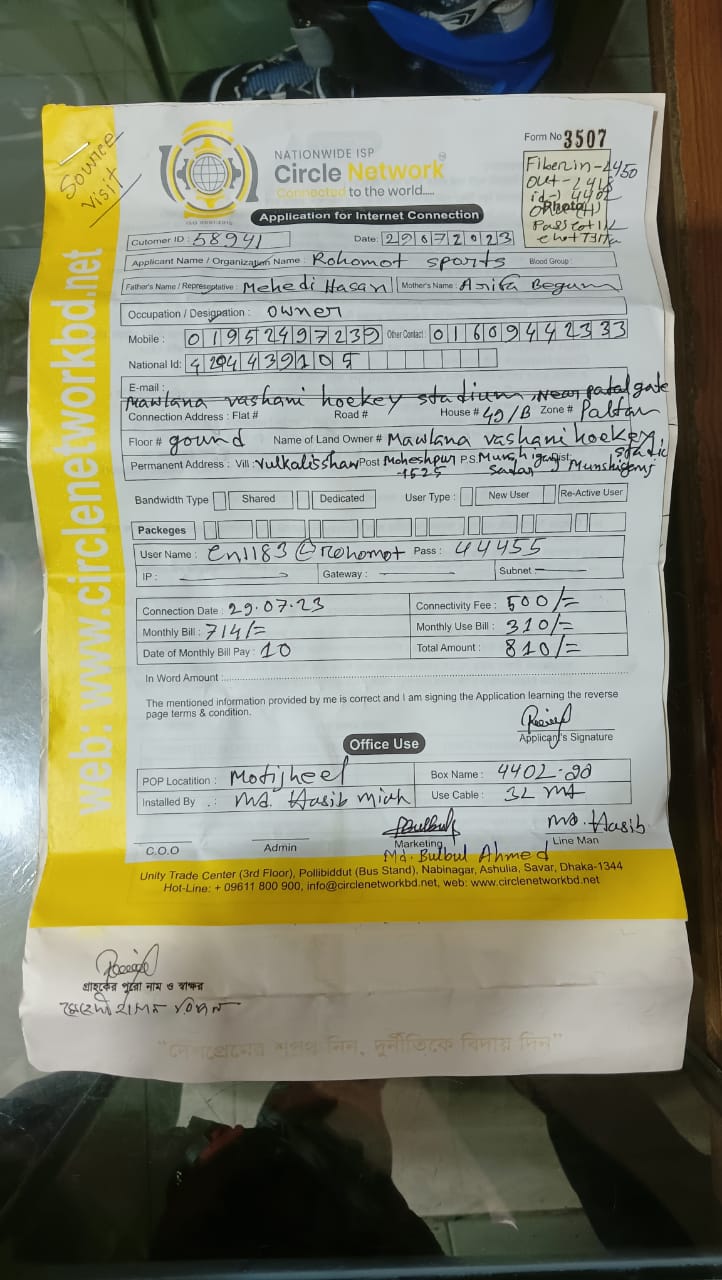 Source
visit
NATIONWIDE ISP
Circle Network
Connected to the world.....
ISO 9001:2015
Form No 3507
Fiber in - 2450
Photo
Application for Internet Connection
Cutomer ID : 58941 Date: 29072023
Applicant Name / Organization Name : Rohomot sports Blood Group :
Father's Name / Representative : Mehedi Hasan Mother's Name : Arifa Begum
Occupation / Designation : owner
Mobile : 01952497239 Other Contact : 01609442333
National Id:
E-mail :
Mawlana vashani hockey stadium, Near patal gate
Connection Address : Flat # Road # House # 49/B Zone # Paltan
Floor # gound Name of Land Owner # Mawlana vashani hockey
Permanent Address : Vill : Post Moheshpur P.S Dist: Munshigonj
-1525 Sadar
Bandwidth Type Shared Dedicated User Type : New User Re-Active User
Packeges
User Name : cn1183@rohomot Pass : 44455
IP : Gateway : Subnet
Connection Date : 29.07.23 Connectivity Fee : 500/=
Monthly Bill : 714/= Monthly Use Bill : 310/=
Date of Monthly Bill Pay : 10 Total Amount : 810/=
In Word Amount :
The mentioned information provided by me is correct and I am signing the Application learning the reverse
page terms & condition.
Applicant's Signature
Office Use
POP Locatition : Motijheel Box Name :
Installed By .: Md. Hasib Miah Use Cable :
Md. Hasib
C.O.O Admin Marketing Line Man
Md. Bulbul Ahmed
Unity Trade Center (3rd Floor), Pollibiddut (Bus Stand), Nabinagar, Ashulia, Savar, Dhaka-1344
Hot-Line: + 09611 800 900, info@circlenetworkbd.net, web: www.circlenetworkbd.net
web: www.circlenetworkbd.net
গ্রাহকের পুরো নাম ও স্বাক্ষর
"দেশপ্রেমের শপথ নিন, দুর্নীতিকে বিদায় দিন"